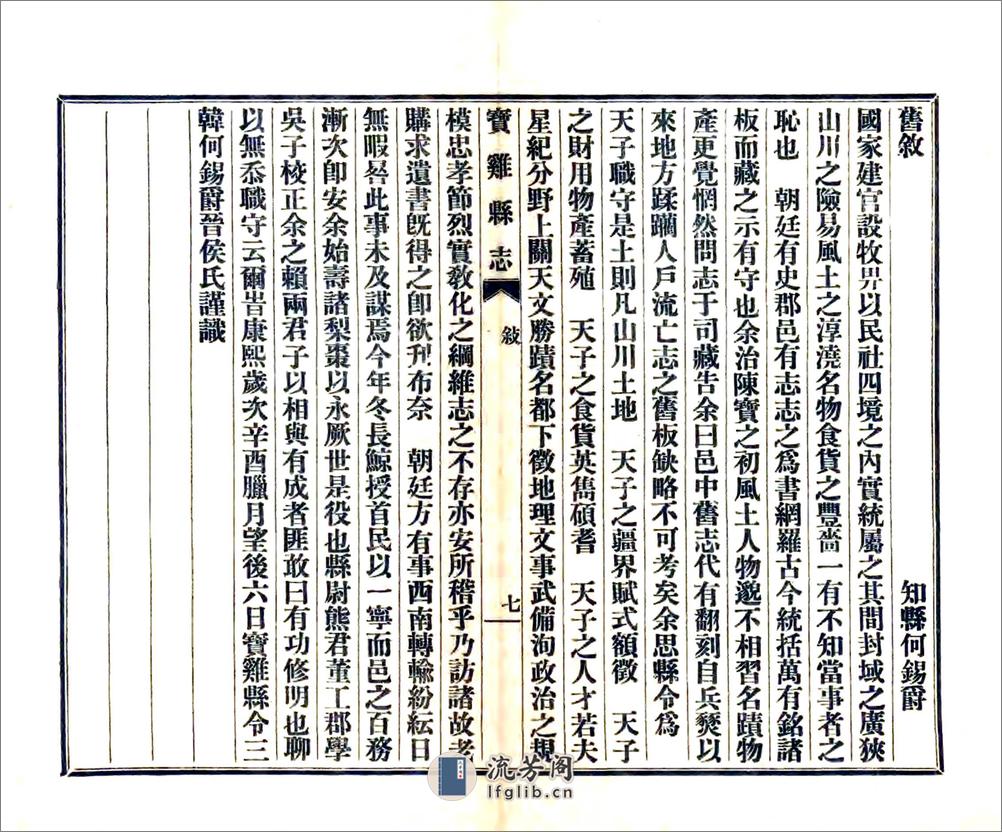 舊敘
知縣何錫爵
國家建官設牧畀以民社四境之內實統屬之其間封域之廣狹
山川之險易風土之淳澆名物食貨之豐嗇一有不知當事者之
恥也　朝廷有史郡邑有志志之爲書網羅古今統括萬有銘諸
板而藏之示有守也余治陳寶之初風土人物邈不相習名蹟物
產更覺惘然問志于司藏告余曰邑中舊志代有翻刻自兵燹以
來地方蹂躪人戶流亡志之舊板缺略不可考矣余思縣令爲
天子職守是土則凡山川土地　天子之疆界賦式額徵　天子
之財用物產蓄殖　天子之食貨英雋碩耆　天子之人才若夫
星紀分野上關天文勝蹟名都下徵地理文事武備洵政治之規
寶雞縣志
敘
七
模忠孝節烈實敎化之綱維志之不存亦安所稽乎乃訪諸故老
購求遺書旣得之卽欲刋布奈　朝廷方有事西南轉輸紛紜日
無暇晷此事未及謀焉今年冬長鯨授首民以一寧而邑之百務
漸次卽安余始壽諸梨棗以永厥世是役也縣尉熊君董工郡學
吳子校正余之賴兩君子以相與有成者匪敢曰有功修明也聊
以無忝職守云爾旹康熙歲次辛酉臘月望後六日寶雞縣令三
韓何錫爵晉侯氏謹識
流芳阁
lfglib.cn